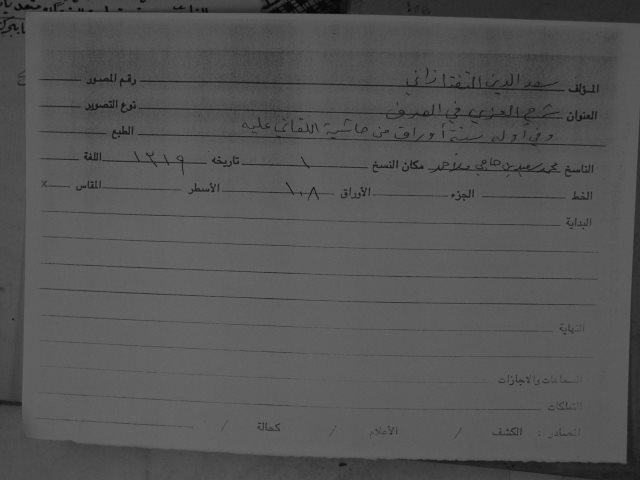 المؤلف سعد الدين التفتازاني رقم المصور
العنوان شرح العزي في الصرف نوع التصوير
وفي أوله ستة أوراق من حاشية اللقاني عليه الطبع
الناسخ محمد سعيد بن حاجي مكان النسخ / تاريخه ١٣١٩ اللغة
الخط الجزء الأوراق ١٠٨ الأسطر المقاس x
البداية
النهاية
السماعات والاجازات
التملكات
المصادر : الكشف / الأعلام / كحالة /